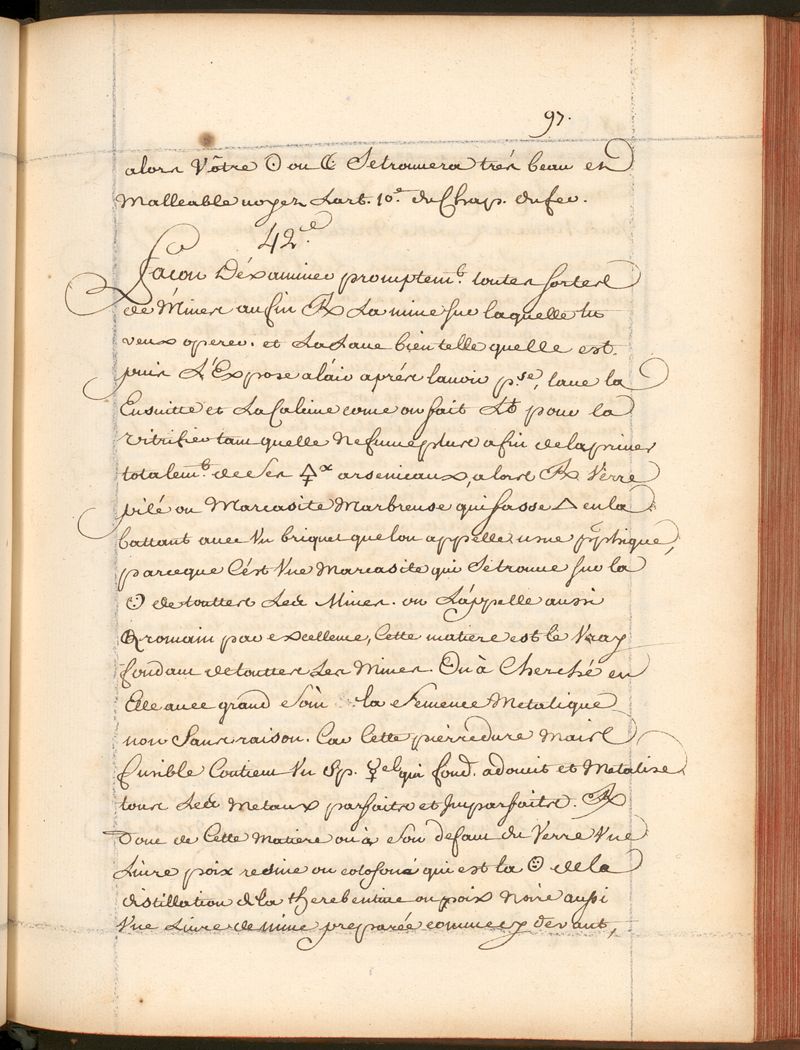 97.
alors Vôtre ☉ ou ☾ Se trouvera trés beau et
Malleable voyez Lart. 10.e du Chap. du fer.
42.e
Facon Déxaminer promptem.t toutes sortes
de Mines au fin ℞ La mine sur laquelle tu
veux operer. et La Lave bien telle quelle est.
puis L'Expose alair aprés lavoir p.se, lave la
Ensuitte et La Calcine come on fait L♄ pour la
vitrifier tant quelle Ne fume plus afin de la priver
totalem.t de Ses 🜍x arsenicaux, alors ℞ Verre
pilé ou Marcasite Marbreuse qui fasse △ en la
battant avec Vn briquet que lon appelle mine
parceque C'ést Vne Marcasite qui Se trouve sur la
☉ de touttes Les Mines. on L'appelle aussi
romain par excellence, Cette matiere est le Vray
fondant de touttes Les Mines. On à Cherché en
Elle avec grand Soin la Semence Metalique
non Sans raison. Car Cette pierre dure Mais
fusible Contient Vn Sp. ☿el qui fond. adoucit et Metalise
tous Les Metaux parfaits et Imparfaits. ℞
Donc de Cette Matiere ou à Son defaut du Verre Vne
Livre poix resine ou colofone qui est la de la
distillation de la therebentine ou poix Noire aussi
Vne Livre de mine preparée comme cy devant,